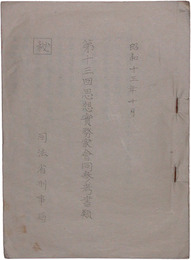 昭和十三年十月
秘
第十三回思想實務家會同議事速記録
司法省刑事局